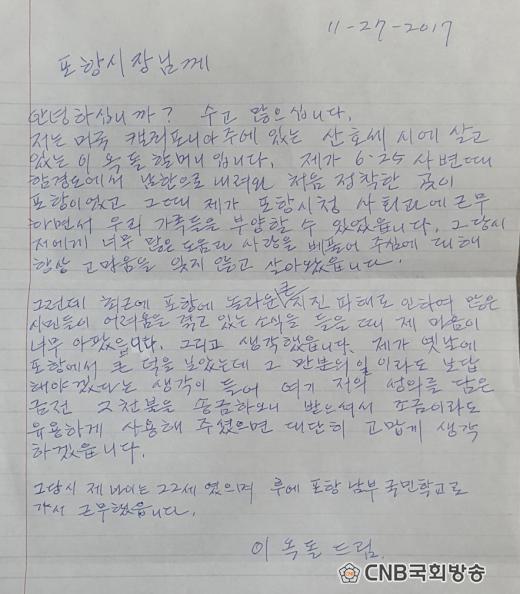 11-27-2017
포항시장님께
안녕하십니까? 수고 많으십니다.
저는 미국 캘리포니아주에 있는 산호세 시에 살고
있는 이 옥돌 할머니입니다. 제가 6.25 사변때
함경도에서 남한으로 내려와 처음 정착한 곳이
포항이었고 그때 제가 포항시청 사회과에 근무
하면서 우리 가족들을 부양할 수 있었읍니다. 그당시
저에게 너무 많은 도움과 사랑을 베풀어 주심에 대해
항상 고마움을 잊지 않고 살아왔읍니다.
그런데 최근에 포항에 놀라운 큰 지진 파태로 인하여 많은
시민들이 어려움을 겪고 있는 소식을 들을 때 제 마음이
너무 아팠습니다. 그리고 생각했읍니다. 제가 옛날에
포항에서 큰 덕을 날았는데 그 만분의 일이라도 보답
해야겠다는 생각이 들어 여기 저의 성의를 담은
금전 2천불을 송금하오니 받으셔서 조금이라도
유용하게 사용해 주셨으면 대단히 고맙게 생각
하겠읍니다.
그당시 제 나이는 22세 였으며 후에 포항 남부 국민학교로
가서 근무했읍니다.
이 옥돌 드림.
CNB국회방송